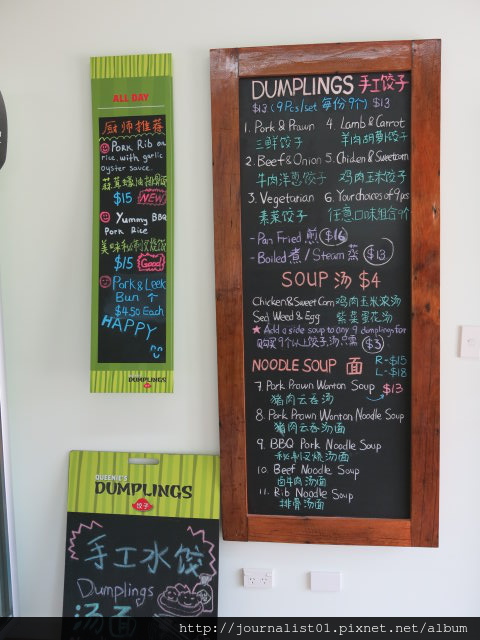 ALL DAY
厨师推荐
Pork Rib on
rice, with garlic
oyster sauce.
蒜茸蠔油排骨饭
$15 NEW!
Yummy BBQ
Pork Rice
美味秘制叉烧饭
$15 Good
Pork & Leek
Bun 个
$4.50 Each
HAPPY
DUMPLINGS
QUEENIE'S
DUMPLINGS
饺子
手工水饺
Dumplings
汤面
DUMPLINGS 手工饺子
$13 (9Pcs/set 每份9个) $13
1. Pork & Prawn 4. Lamb & Carrot
三鲜饺子 羊肉胡萝卜饺子
2. Beef & Onion 5. Chicken & Sweetcorn
牛肉洋葱饺子 鸡肉玉米饺子
3. Vegetarian 6. Your choices of 9pcs
素菜饺子 任意口味组合9个
- Pan Fried 煎 $16
- Boiled 煮 / Steam 蒸 $13
SOUP 汤 $4
Chicken & Sweet Corn 鸡肉玉米浓汤
Sea Weed & Egg 紫菜蛋花汤
★ Add a side soup to any 9 dumplings for
购买9个以上饺子,汤只需 $3
NOODLE SOUP 面 R-$15
L-$18
7. Pork Prawn Wonton Soup $13
猪肉云吞汤
8. Pork Prawn Wonton Noodle Soup
猪肉云吞汤面
9. BBQ Pork Noodle Soup
秘制叉烧汤面
10. Beef Noodle Soup
卤牛肉汤面
11. Rib Noodle Soup
排骨汤面
http://journalist01.pixnet.net/album